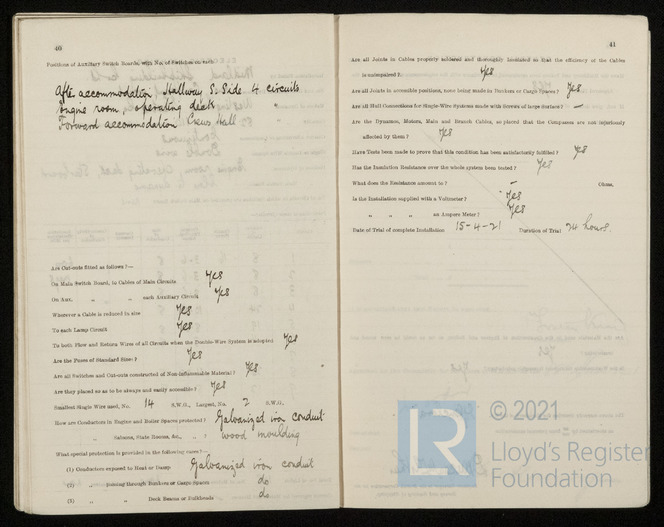 40
Positions of Auxiliary Switch Boards, with No. of Switches on each
After accommodation, Hallway S. Side 4 circuits
Engine room, operating deck "
Forward accommodation Crews Hall "
Are Cut-outs fitted as follows?—
On Main Switch Board, to Cables of Main Circuits Yes
On Aux. " " each Auxiliary Circuit Yes
Wherever a Cable is reduced in size Yes
To each Lamp Circuit Yes
To both Flow and Return Wires of all Circuits when the Double-Wire System is adopted Yes
Are the Fuses of Standard Sizes? Yes
Are all Switches and Cut-outs constructed of Non-inflammable Material? Yes.
Are they placed so as to be always and easily accessible? Yes
Smallest Single Wire used, No. 14 S.W.G., Largest, No. 2 S.W.G.
How are Conductors in Engine and Boiler Spaces protected? Galvanized iron conduit
" Saloons, State Rooms, &c., " ? wood moulding
What special protection is provided in the following cases?—
(1) Conductors exposed to Heat or Damp Galvanized iron conduit
(2) " passing through Bunkers or Cargo Spaces do
(3) " " Deck Beams or Bulkheads do
41
Are all Joints in Cables properly soldered and thoroughly insulated so that the efficiency of the Cables
is unimpaired? Yes
Are all Joints in accessible positions, none being made in Bunkers or Cargo Spaces? Yes.
Are all Hull Connections for Single-Wire Systems made with Screws of large Surface? —
Are the Dynamos, Motors, Main and Branch Cables, so placed that the Compasses are not injuriously
affected by them? Yes
Have Tests been made to prove that this condition has been satisfactorily fulfilled? Yes
Has the Insulation Resistance over the whole system been tested? Yes
What does the Resistance amount to? — Ohms.
Is the Installation supplied with a Voltmeter? Yes
" " " an Ampere Meter? Yes
Date of Trial of complete Installation 15-4-21 Duration of Trial 24 hours.
© 2021
LR
Lloyd's Register
Foundation